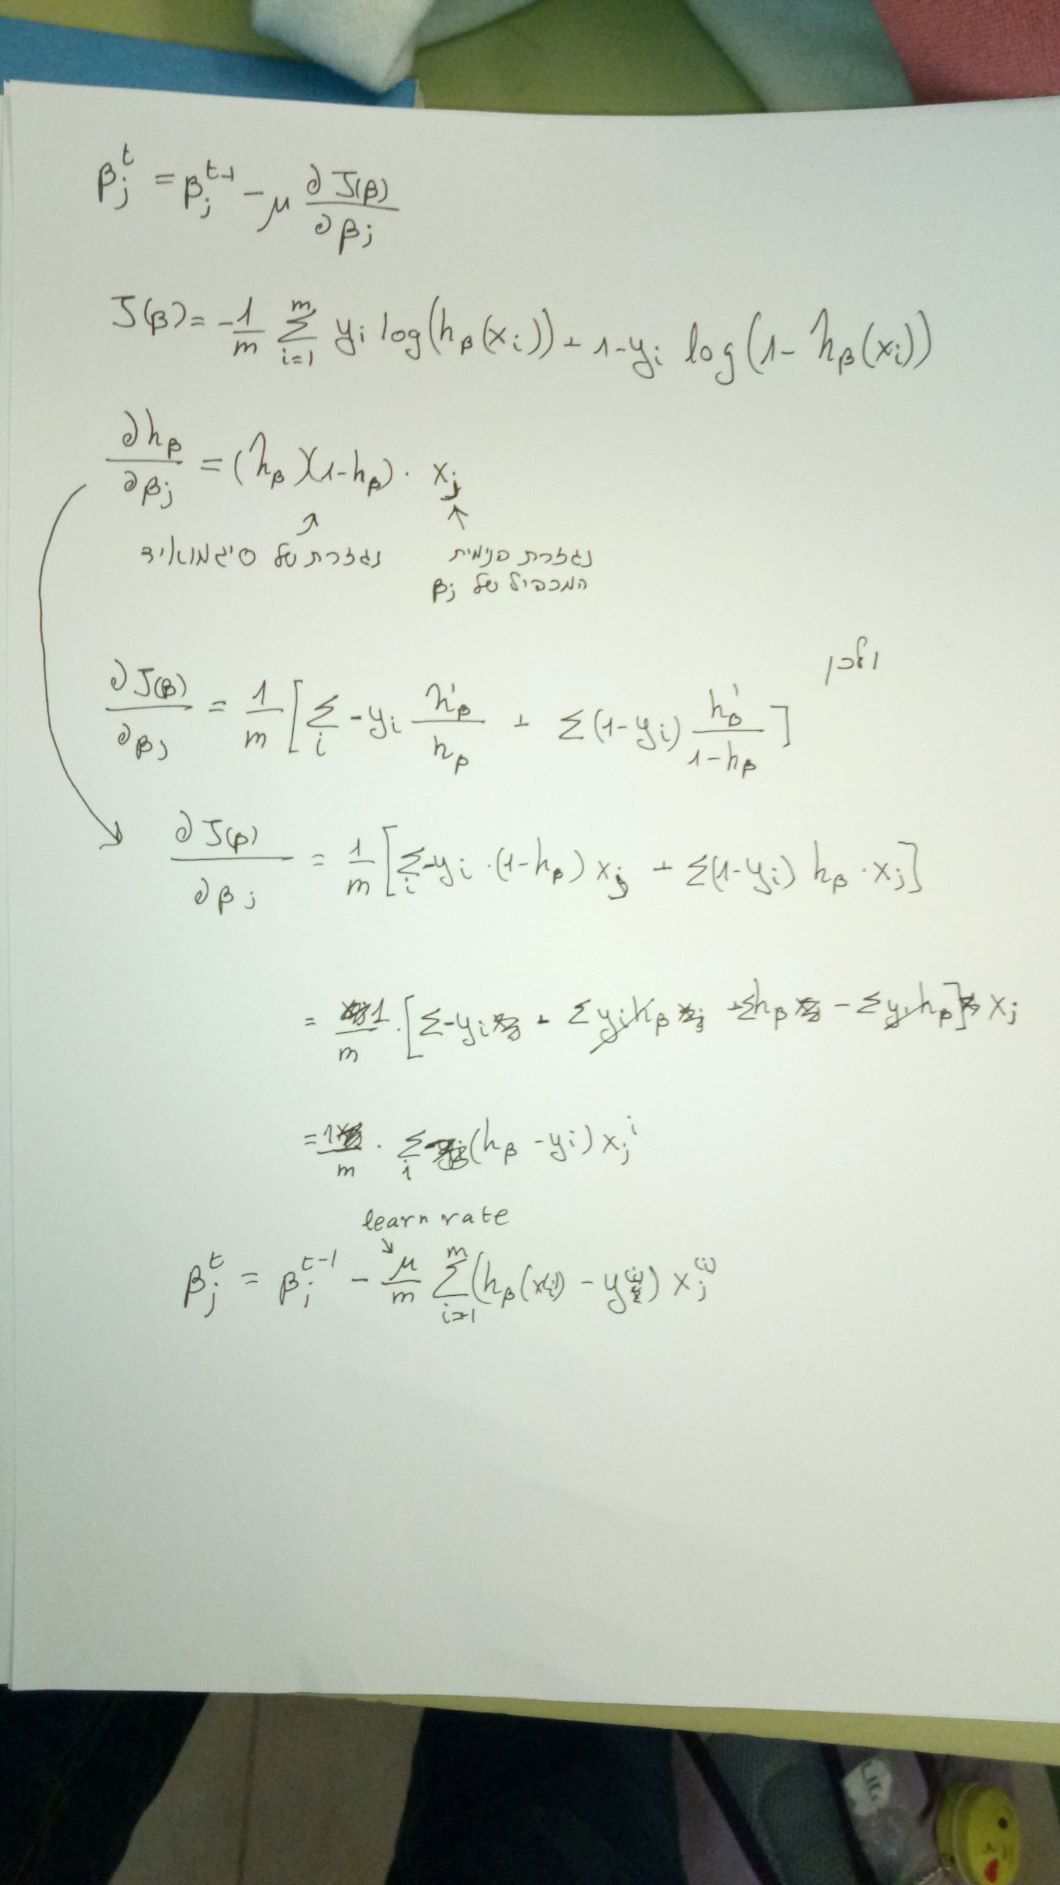 β_j^t = β_j^{t-1} - μ ∂J(β)/∂β_j
J(β) = -1/m Σ_{i=1}^m y_i log(h_β(x_i)) + 1-y_i log(1-h_β(x_i))
∂h_β/∂β_j = (h_β)(1-h_β) · x_j
נגזרת של סיגמואיד
נגזרת פנימית
המכפיל של β_j
ולכן
∂J(β)/∂β_j = 1/m [Σ_i -y_i h'_β/h_β + Σ(1-y_i) h'_β/(1-h_β)]
∂J(β)/∂β_j = 1/m [Σ_i -y_i · (1-h_β) x_j + Σ(1-y_i) h_β · x_j]
= 1/m · [Σ-y_i + Σ y_i h_β + Σh_β - Σ y_i h_β] x_j
= 1/m · Σ_i (h_β - y_i) x_j^i
learn rate
β_j^t = β_j^{t-1} - μ/m Σ_{i=1}^m (h_β(x^{(i)}) - y^{(i)}) x_j^{(i)}